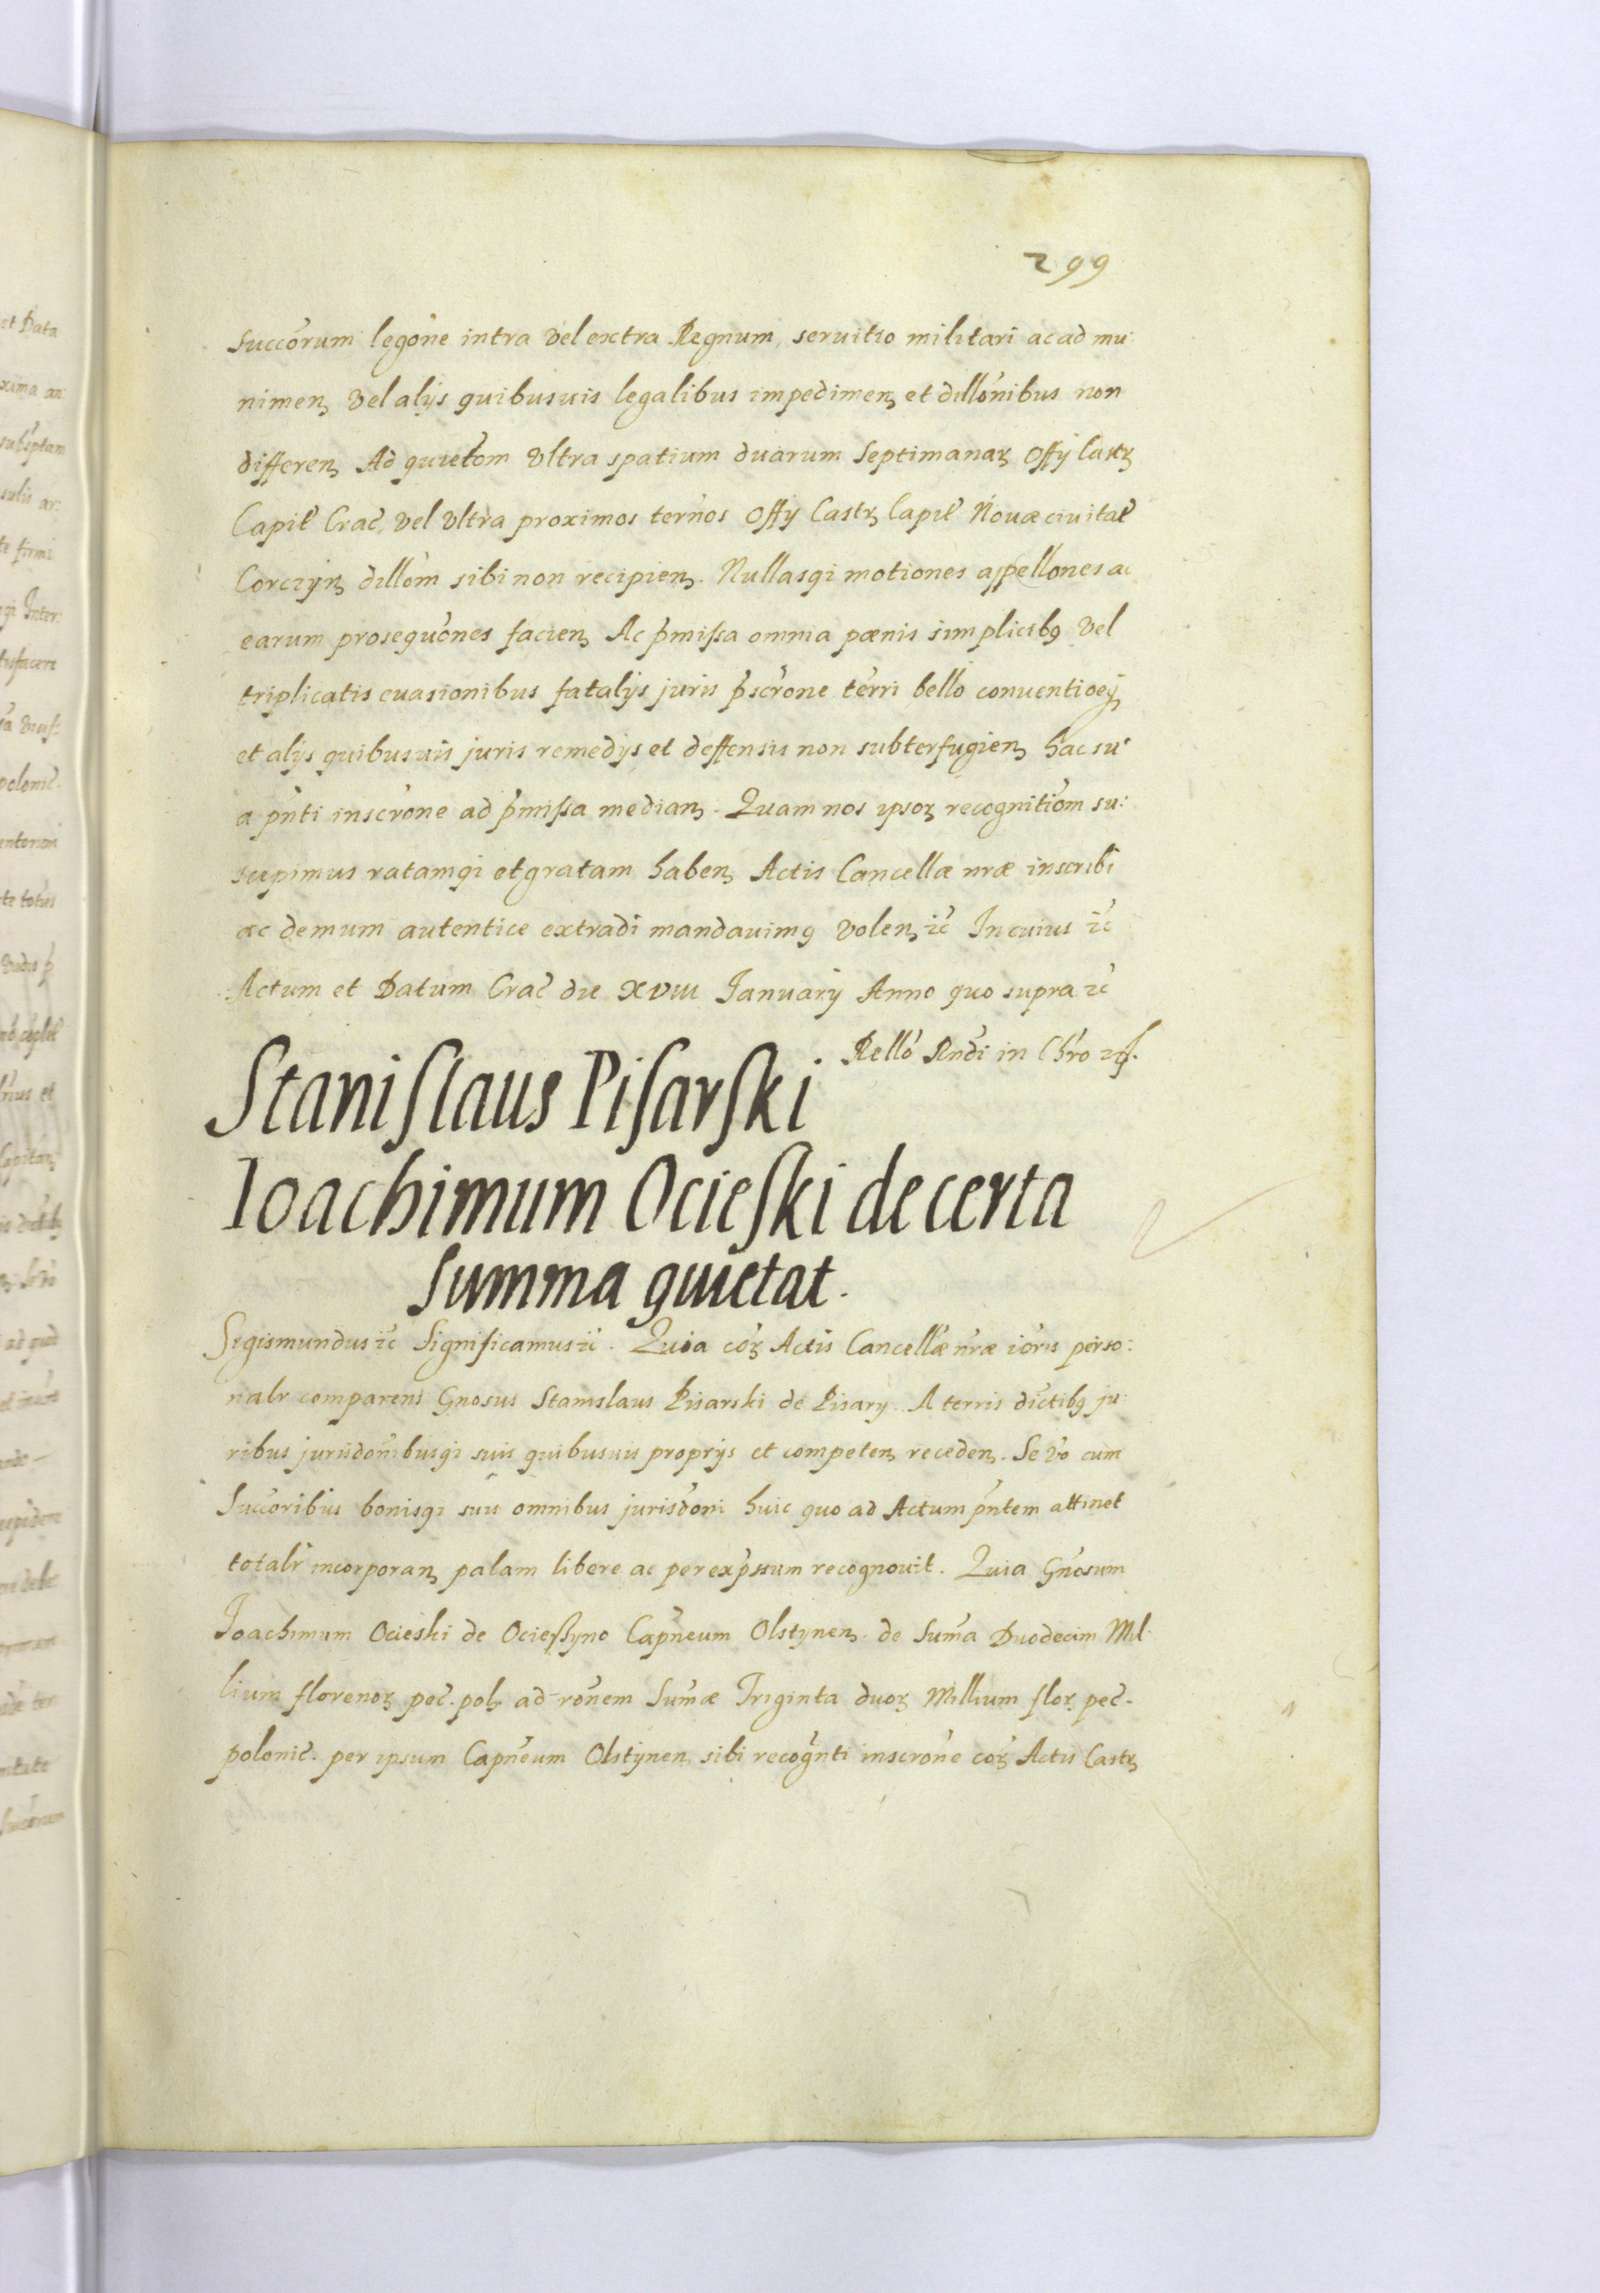 299
Succorum legone intra vel extra Regnum, seruitio militari ac ad mu:
nimen vel alÿs quibusuis legalibus impedimen et dillonibus non
differen Ad quietom vltra spatium duarum Septimanar Offÿ Castr
Capit Crac vel vltra proximos ternos Offÿ Castr Capit Nouæ ciuitat
Corczÿn dillom sibi non recipien. Nullasqi motiones appellones ac
earum prosequones facien Ac pmissa omnia pœnis simplicibq vel
triplicatis euasionibus fatalÿs juris pscrone terri bello
et alÿs quibusuis juris remedÿs et deffensis non subterfugien hac su:
a pnti inscrone ad pmissa median. Quam nos ipsor recognitiom su:
scepimus ratamqi et gratam haben Actis Cancellæ nræ inscribi
ac demum autentice extradi mandauimq volen zc In cuius zc
Actum et Datum Crac die XVIII Januarÿ Anno quo supra zc
Rello Rndi in Chro
Stanislaus Pisarski
Ioachimum Ocieski de certa
summa quietat.
Sigismundus zc Significamus zc. Quia cor Actis Cancellæ nræ ioris perso:
nalr comparens Gnosus Stanislaus Pisarski de Pisarÿ. A terris dictibq ju:
ribus jurisdonibusqi suis quibusuis proprÿs et competen receden. Se vo cum
Succoribus bonisqi suis omnibus jurisdoni huic quo ad Actum pntem attinet
totalr incorporan palam libere ac per expssum recognouit. Quia Gnosum
Joachimum Ocieski de Ociessÿno Capneum Olstÿnen de Suma Duodecim Mil:
lium florenor pec. pol ad ronem Sumæ Triginta duor Millium flor pec.
polonic. per ipsum Capneum Olstÿnen sibi recognti inscrone cor Actis Castr